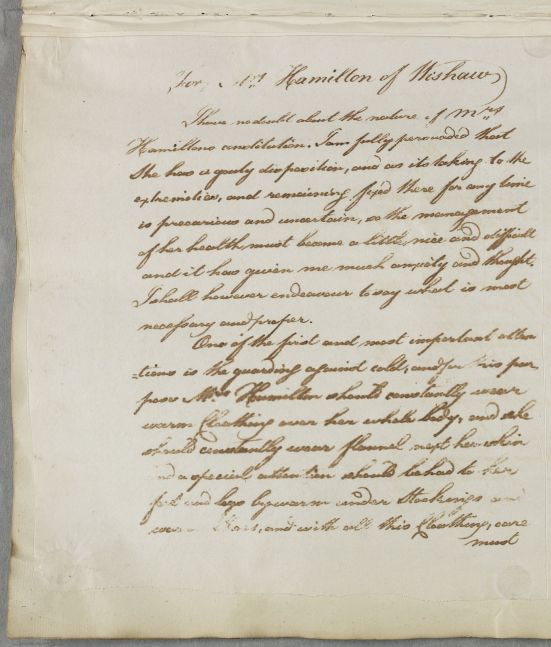 For Mrs Hamilton of Wishaw
I have no doubt about the nature of Mrs
Hamiltons constitution. I am fully perswaded that
She has a gouty disposition, and as its taking to the
extremities, and remaining fixd there for any time
is precarious and uncertain, so the management
of her health must become a little nice and difficult
and it has given me much anxiety and thought.
I shall however endeavour to say what is most
necessary and proper.
One of the first and most important atten
=tions is the guarding against cold; and for this pur
pose Mrs Hamilton should constantly wear
warm Cloathing over her whole body, and she
should constantly wear flannel next her skin
and a special attention should be had to her
feet and legs by warm under Stockings and
Shoes, and with all this Cloathing, care
must